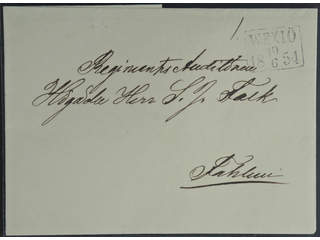 WEXIÖ
19
18 6 54
Regiments Auditeuren
Högädle Herr S. J. Fack
Fahlun